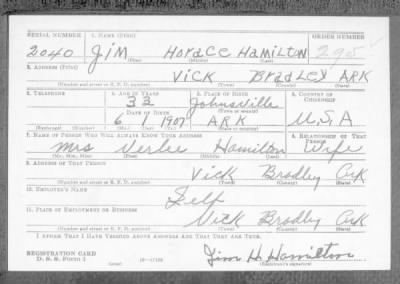 SERIAL NUMBER 1. NAME (Print) ORDER NUMBER
2040 Jim Horace Hamilton 295
(First) (Middle) (Last)
2. ADDRESS (Print)
Vick Bradley ARK
(Number and street or R. F. D. number) (Town) (County) (State)
3. TELEPHONE 4. AGE IN YEARS 5. PLACE OF BIRTH 6. COUNTRY OF CITIZENSHIP
33 Johnsville
DATE OF BIRTH (Town or county)
6 1907 ARK U.S.A
(Exchange) (Number) (Mo.) (Day) (Yr.) (State or country)
7. NAME OF PERSON WHO WILL ALWAYS KNOW YOUR ADDRESS 8. RELATIONSHIP OF THAT PERSON
Mrs Verlee Hamilton Wife
(Mr., Mrs., Miss) (First) (Middle) (Last)
9. ADDRESS OF THAT PERSON
Vick Bradley Ark
(Number and street or R. F. D. number) (Town) (County) (State)
10. EMPLOYER'S NAME
Self
11. PLACE OF EMPLOYMENT OR BUSINESS
Vick Bradley Ark
(Number and street or R. F. D. number) (Town) (County) (State)
I AFFIRM THAT I HAVE VERIFIED ABOVE ANSWERS AND THAT THEY ARE TRUE.
REGISTRATION CARD
D. S. S. Form 1 (over) Jim H. Hamilton
(Registrant's signature)